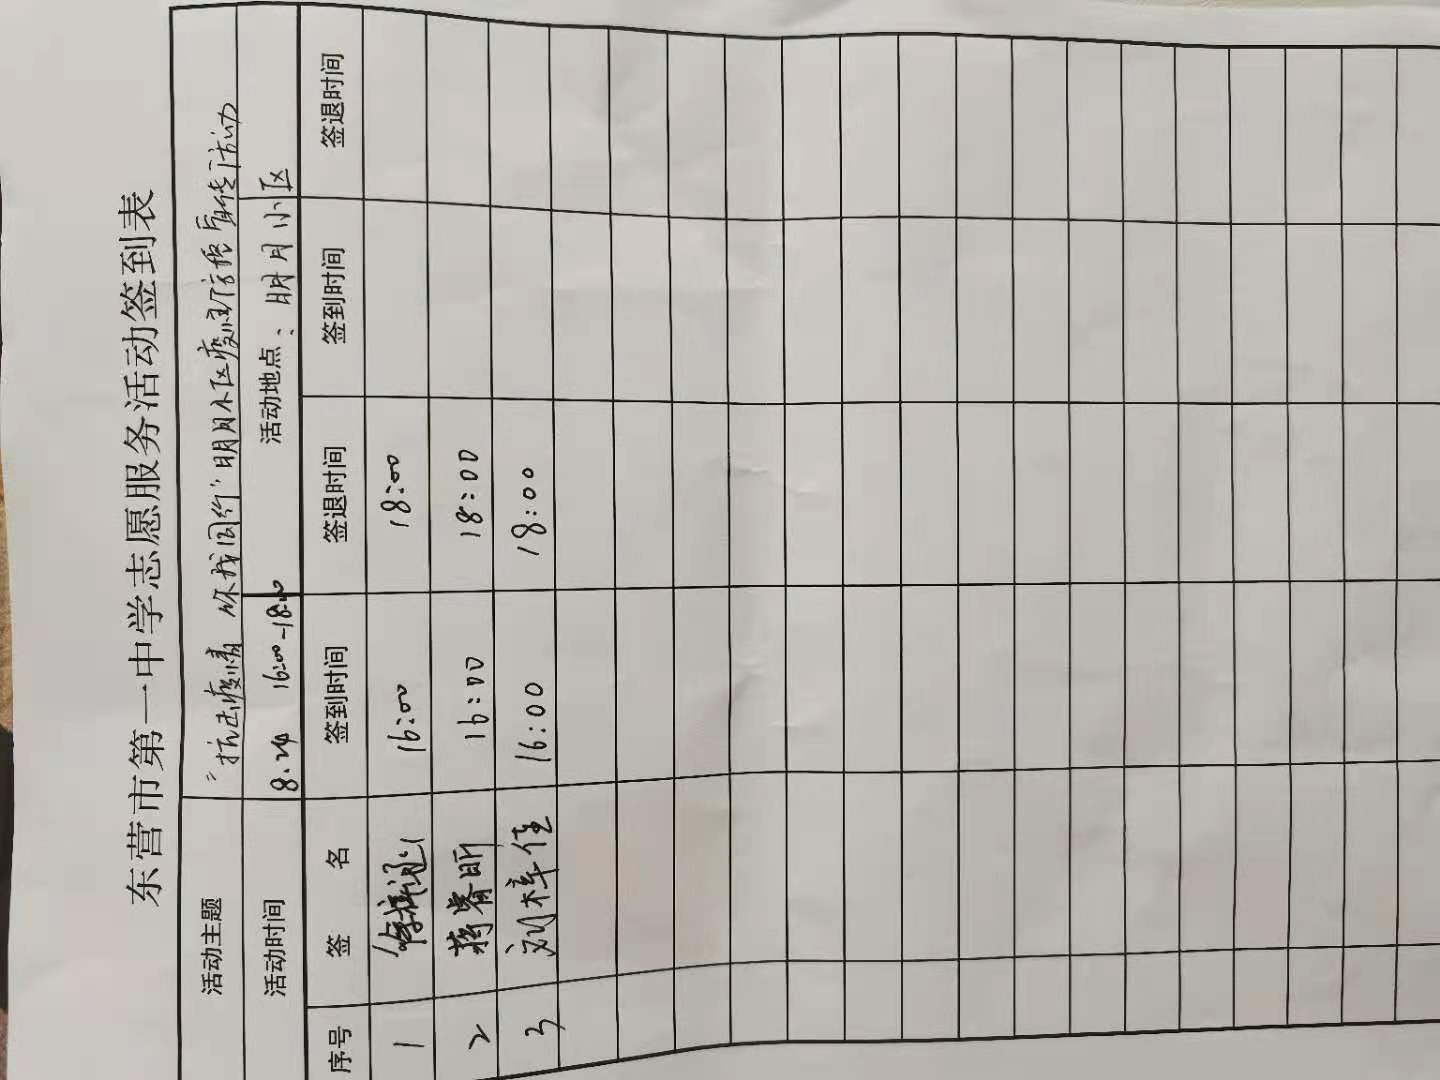 东营市第一中学志愿服务活动签到表
活动主题 "抗击疫情 你我同行"明月小区疫情防控宣传活动
活动时间 8.24 16:00-18:00 活动地点、明月小区
序号 签 名 签到时间 签退时间 签到时间 签退时间
1 16:00 18:00
2 蒋睿昕 16:00 18:00
3 刘梓佳 16:00 18:00